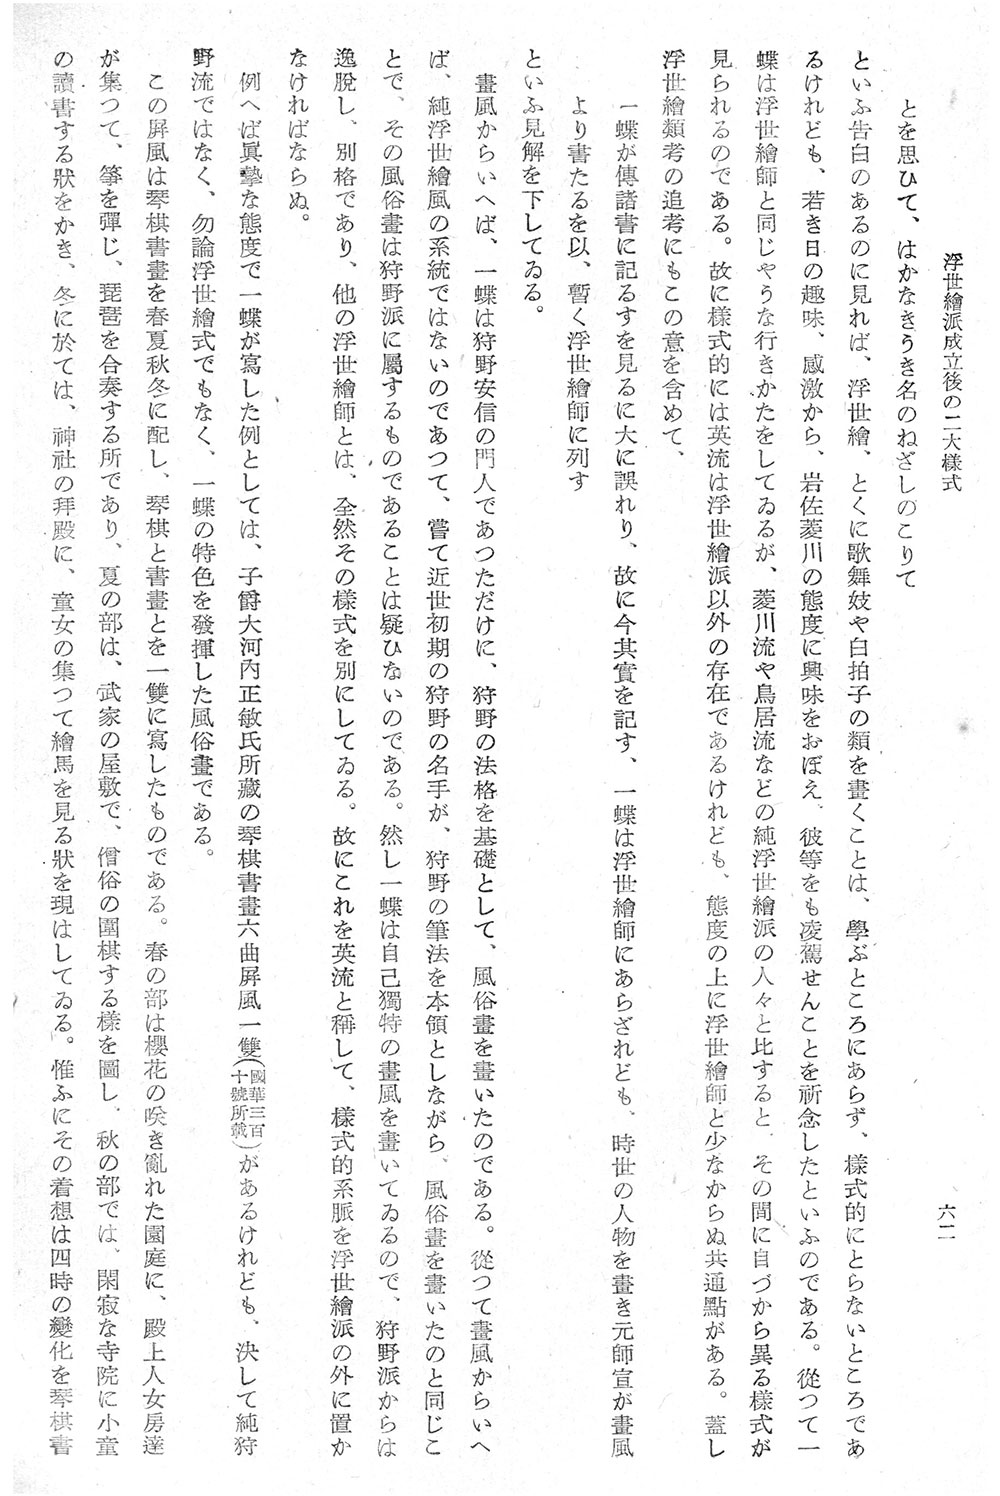 浮世繪派成立後の二大樣式
六二
とを思ひて、はかなきうき名のねざしのこりて
といふ告白のあるのに見れば、浮世繪、とくに歌舞妓や白拍子の類を畫くことは、學ぶところにあらず、樣式的にとらないところであ
るけれども、若き日の趣味、感激から、岩佐菱川の態度に興味をおぼえ、彼等をも凌駕せんことを祈念したといふのである。從つて一
蝶は浮世繪師と同じやうな行きかたをしてゐるが、菱川流や鳥居流などの純浮世繪派の人々と比すると、その間に自づから異る樣式が
見られるのである。故に樣式的には英流は浮世繪派以外の存在であるけれども、態度の上に浮世繪師と少なからぬ共通點がある。蓋し
浮世繪類考の追考にもこの意を含めて、
一蝶が傳諸書に記るすを見るに大に誤れり、故に今其實を記す、一蝶は浮世繪師にあらざれども、時世の人物を畫き元師宣が畫風
より書たるを以、暫く浮世繪師に列す
といふ見解を下してゐる。
畫風からいへば、一蝶は狩野安信の門人であつただけに、狩野の法格を基礎として、風俗畫を畫いたのである。從つて畫風からいへ
ば、純浮世繪風の系統ではないのであつて、嘗て近世初期の狩野の名手が、狩野の筆法を本領としながら、風俗畫を畫いたのと同じこ
とで、その風俗畫は狩野派に屬するものであることは疑ひないのである。然し一蝶は自己獨特の畫風を畫いてゐるので、狩野派からは
逸脫し、別格であり、他の浮世繪師とは、全然その樣式を別にしてゐる。故にこれを英流と稱して、樣式的系脈を浮世繪派の外に置か
なければならぬ。
例へば眞摯な態度で一蝶が寫した例としては、子爵大河內正敏氏所藏の琴棋書畫六曲屛風一雙(國華三百十號所載)があるけれども、決して純狩
野流ではなく、勿論浮世繪式でもなく、一蝶の特色を發揮した風俗畫である。
この屛風は琴棋書畫を春夏秋冬に配し、琴棋と書畫とを一雙に寫したものである。春の部は櫻花の咲き亂れた園庭に、殿上人女房達
が集つて、箏を彈じ、琵琶を合奏する所であり、夏の部は、武家の屋敷で、僧俗の圍棋する樣を圖し、秋の部では、閑寂な寺院に小童
の讀書する狀をかき、冬に於ては、神社の拜殿に、童女の集つて繪馬を見る狀を現はしてゐる。惟ふにその着想は四時の變化を琴棋書